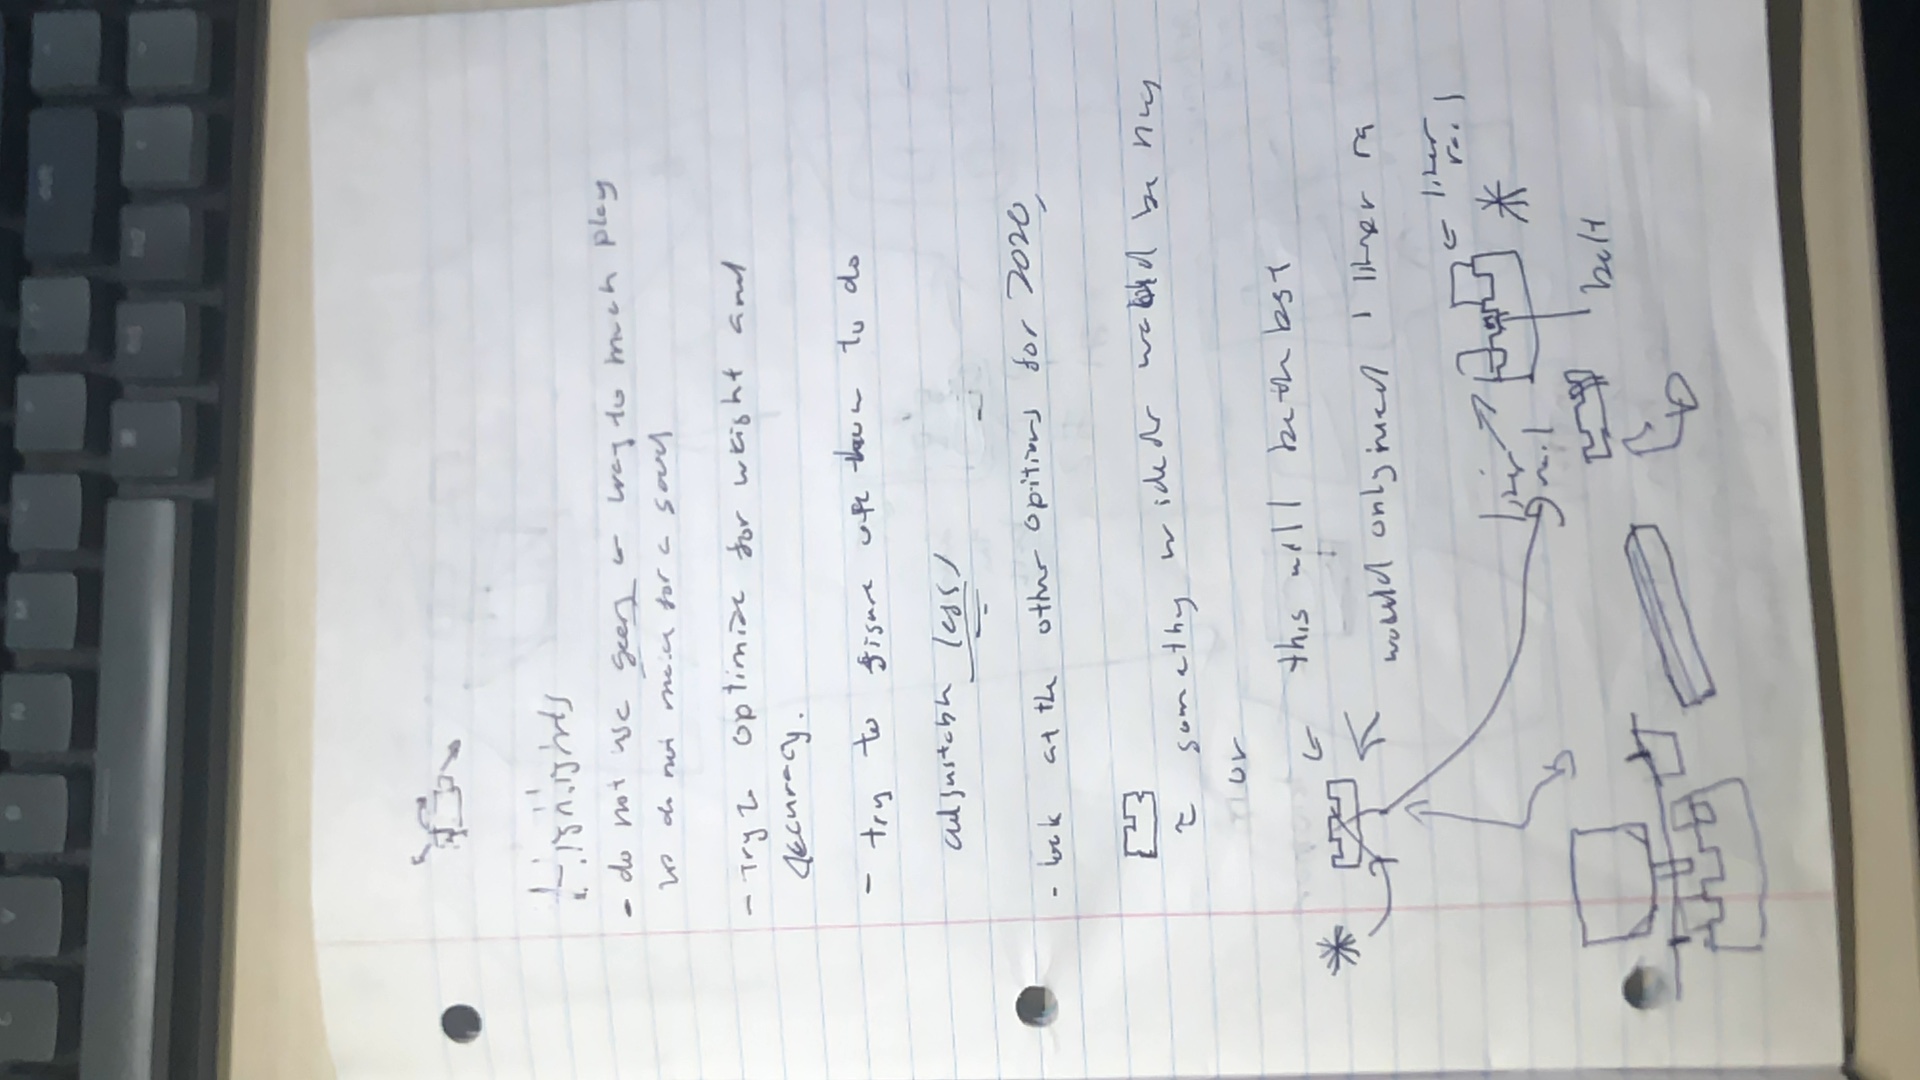 - do not use gears way to much play
for a
- Try 2 optimize for weight and
accuracy.
- try to figure out how to do
adjustable legs
- look at the other opitions for 2020,
something wider would be
this will be the best
would only need 1 liner ra
liner rail
liner rail
belt